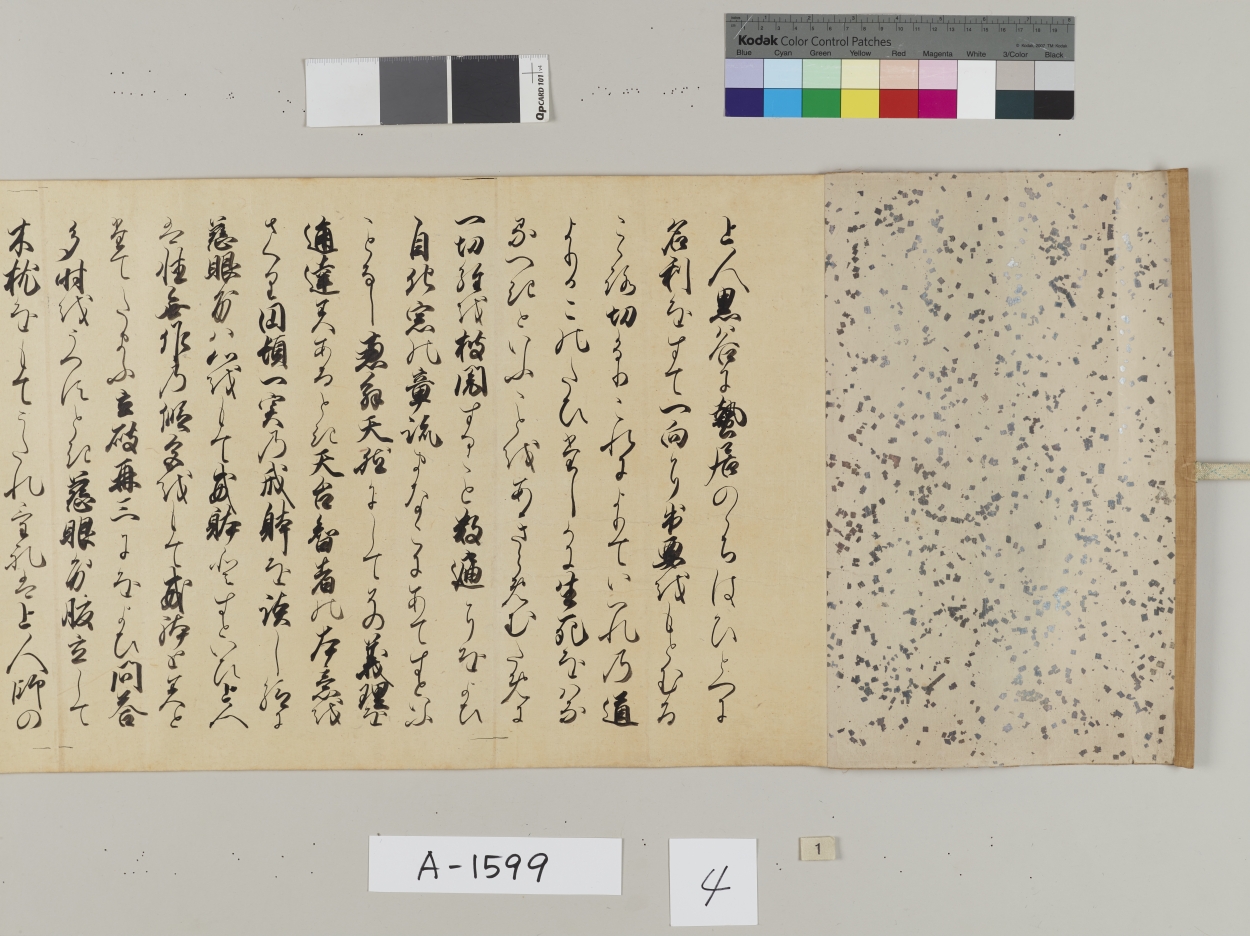 Kodak Color Control Patches
Blue Cyan Green Yellow Red Magenta White 3/Color Black
QPCARD 101
上人黒谷に蟄居のゝちはひとへに
名利をすて一向に出要をもとむる
こゝろ切なりこれによりていつれの道
よりかこのたひたしかに生死をはな
るへきといふことをあきらめむために
一切経を披閲すること数遍にをよひ
自他宗の章疏まなこにあてすといふ
ことなし恵解天然にしてその義理を
通達すあるとき天台智者の本意を
さくり円頓一実の戒躰を談し給に
慈眼房ハ心をもて戒躰とすといひ上人
は性無作の仮色をもて戒躰とすと
たてたまふ立破再三にをよひ問答
多時をうつすとき慈眼房腹立して
木枕をもてうたれけれは上人師の
A-1599
4
1